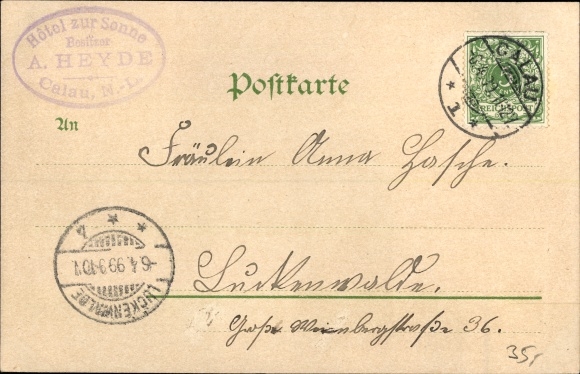 Hôtel zur Sonne
Besitzer
A. HEYDE
Calau, N.-L.
CALAU
Postkarte
REICHSPOST
An
Fräulein Anna Hasche.
Luckenwalde.
LUCKENWALDE
-6.4.99.9-10V.
Große Weinbergstraße 36.
35,-